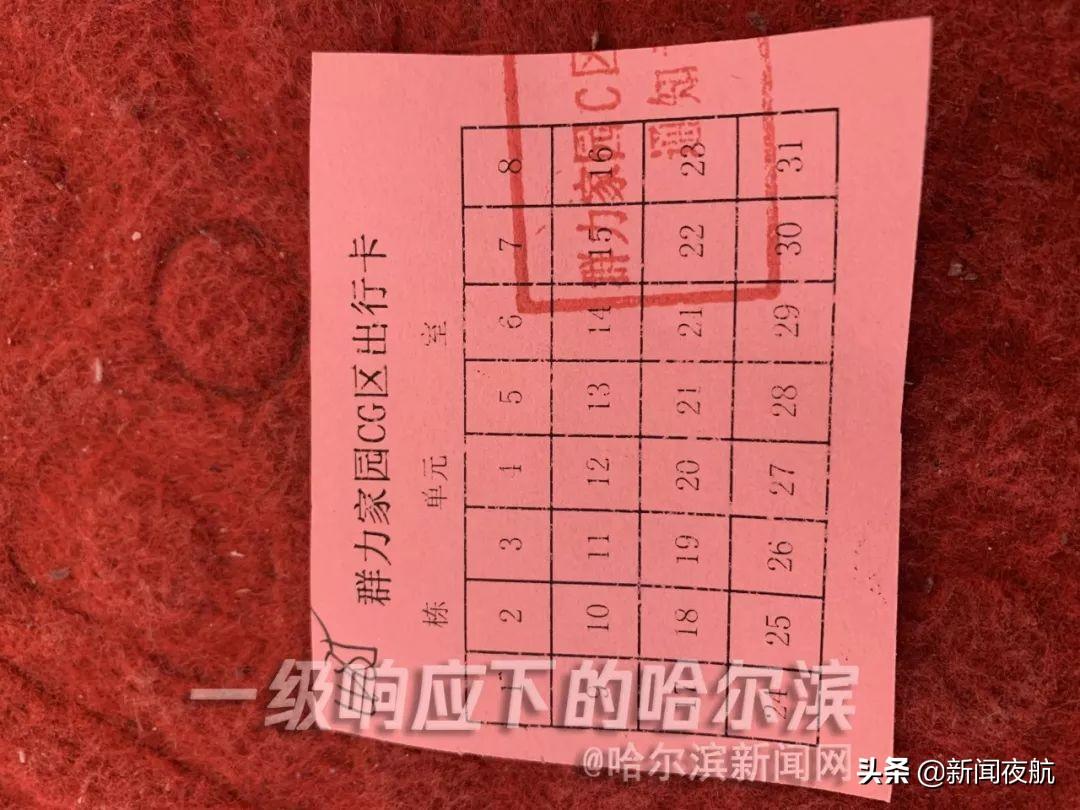 群力家园CG区出行卡
栋 单元 室
1 2 3 4 5 6 7 8
9 10 11 12 13 14 15 16
17 18 19 20 21 21 22 23
24 25 26 27 28 29 30 31
群力家园C区
通知
一级响应下的哈尔滨
@哈尔滨新闻网
头条 @新闻夜航